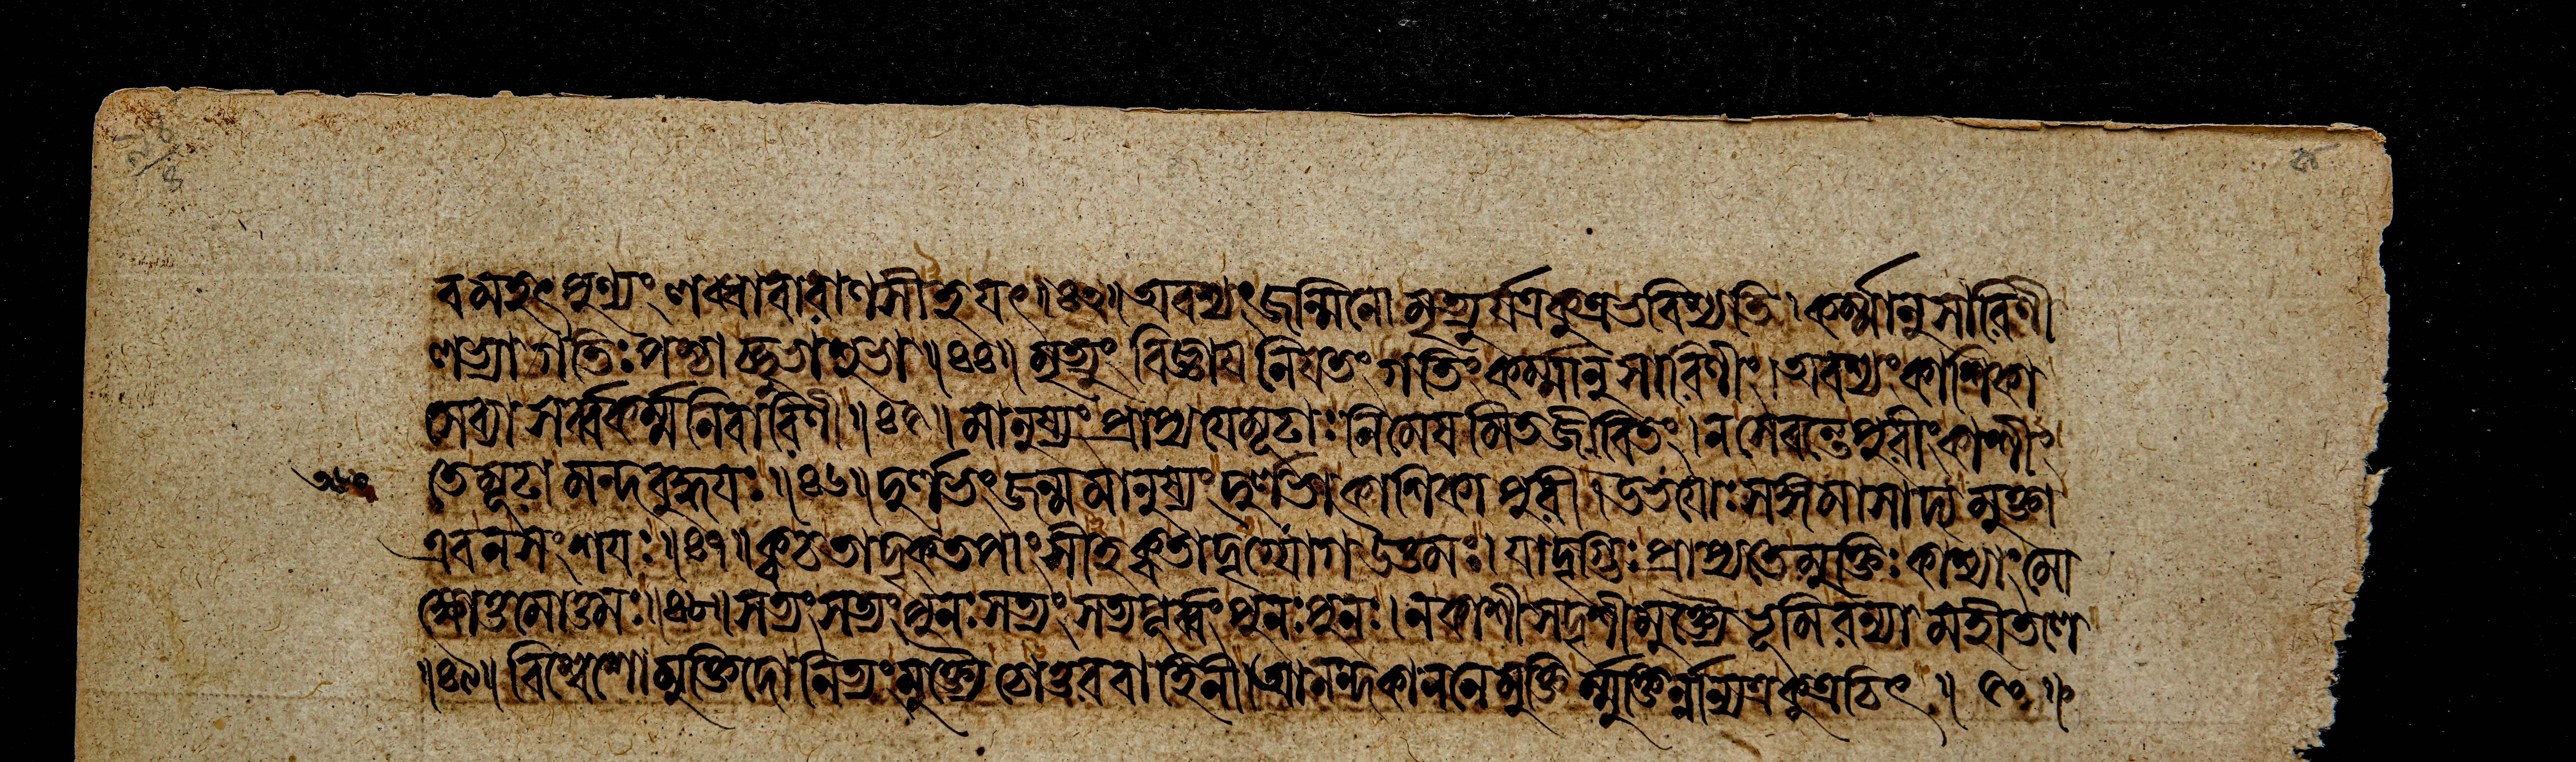 বমহৎপুণ্যং ণব্ধাবারাণসীহ্যৎ॥৪৩॥অবশ্যংজন্মিনোমৃত্যুর্যত্রকুত্রভবিষ্যতি।কর্ম্মানুসারিণী
ণভ্যাগতিঃপশ্চাচ্ছুভাশুভা॥৪৪॥মৃত্যুং বিজ্ঞায়নিয়তংগতিংকর্ম্মানুসারিণীং।অবশ্যংকাশিকা
সেব্যাসর্ব্বকর্ম্মনিবারিণী॥৪৫॥মানুষ্যং প্রাপ্যযেমূঢাঃনিমেষমিতজীবিতং।নসেবন্তেপুরীংকাশীং
তেমূঢামন্দবুদ্ধয়ঃ॥৪৬॥দুর্ণভংজন্মমানুষ্যংদুর্ণভাকাশিকাপুরী।উভয়োঃসঙ্গমাসাদ্যমুক্তা
এবনসংশয়ঃ॥৪৭॥ক্বচতাদৃকতপাংসীহক্বতাদৃগ্যোগউত্তমঃ।যাদৃগ্ভিঃপ্রাপ্যতেমুক্তিঃকাশ্যাংমো
ক্ষোত্তমোত্তমঃ॥৪৮॥সত্যংসত্যংপুনঃসত্যংসত্যপূর্ব্বংপুনঃপুনঃ।নকাশীসদৃশীমুক্ত্যৈভূমিরন্যামহীতণে
॥৪৯॥বিশ্বেশোমুক্তিদোনিত্যংমুক্ত্যৈচোত্তরবাহিনী।আনন্দকাননেমুক্তির্ম্মুক্তির্নান্যত্রকুত্রচিৎ॥৫০॥